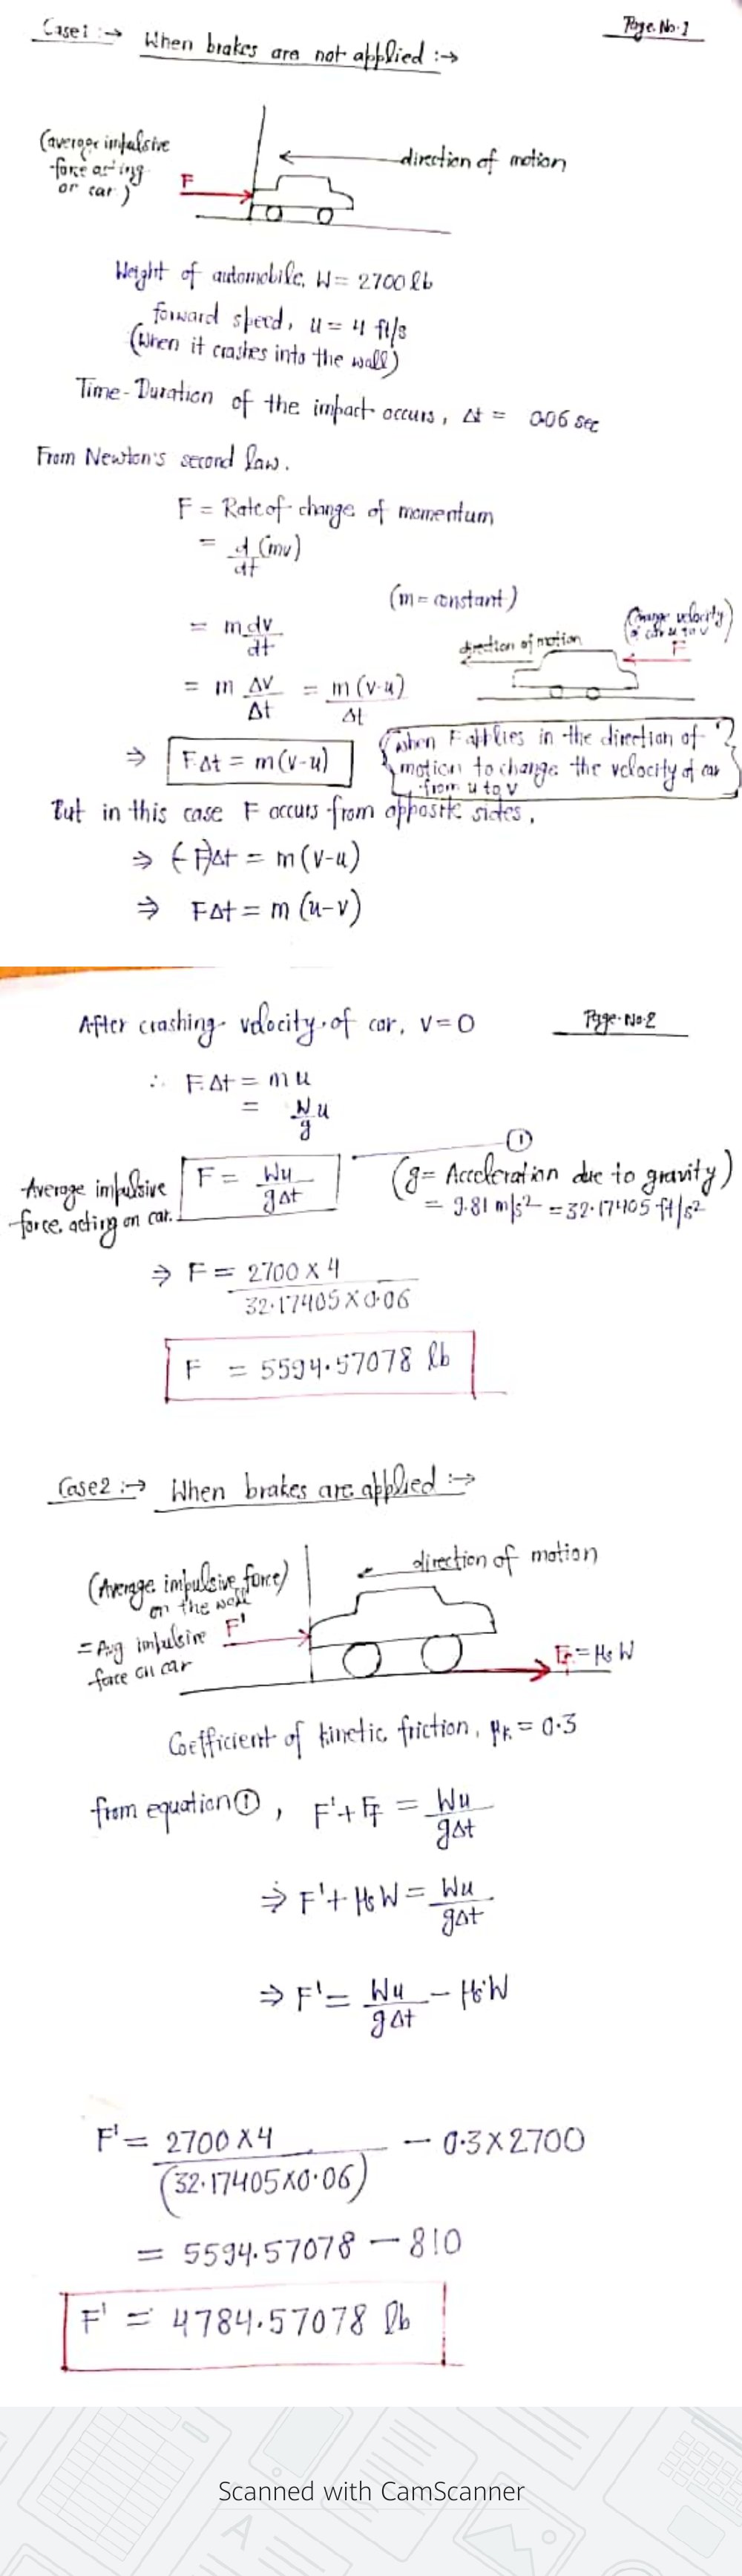 Case1 :→ When brakes are not applied :→
Page. No-1
(average impulsive
force acting
or car)
F
direction of motion
Weight of automobile, W = 2700 lb
forward speed, u = 4 ft/s
(when it crashes into the wall)
Time-Duration of the impact occurs, Δt = 0.06 sec
From Newton's second law.
F = Rate of change of momentum
= d/dt (mv)
(m = constant)
= m dv/dt
direction of motion
(Change velocity
of car u to v)
F
= m Δv/Δt = m(v-u)/Δt
⇒ F.Δt = m(v-u)
{when F applies in the direction of
motion to change the velocity of car
from u to v}
But in this case F occurs from opposite sides,
⇒ (-F)Δt = m(v-u)
⇒ FΔt = m(u-v)
After crashing velocity of car, v=0
Page-No-2
∴ F.Δt = mu
= W/g u
Average impulsive
force, acting on car.
F = Wu/gΔt
①
(g= Acceleration due to gravity)
= 9.81 m/s² = 32.17405 ft/s²
⇒ F = 2700 x 4 / 32.17405 X 0.06
F = 5594.57078 lb
Case2 :→ When brakes are applied :→
(Average impulsive force)
on the wall
= Avg impulsive
force on car
F'
direction of motion
Fr = μs W
Coefficient of kinetic friction, μk = 0.3
from equation ①, F' + Ff = Wu/gΔt
⇒ F' + μs W = Wu/gΔt
⇒ F' = Wu/gΔt - μs W
F' = 2700 X 4 / (32.17405 X 0.06) - 0.3 X 2700
= 5594.57078 - 810
F' = 4784.57078 lb
Scanned with CamScanner